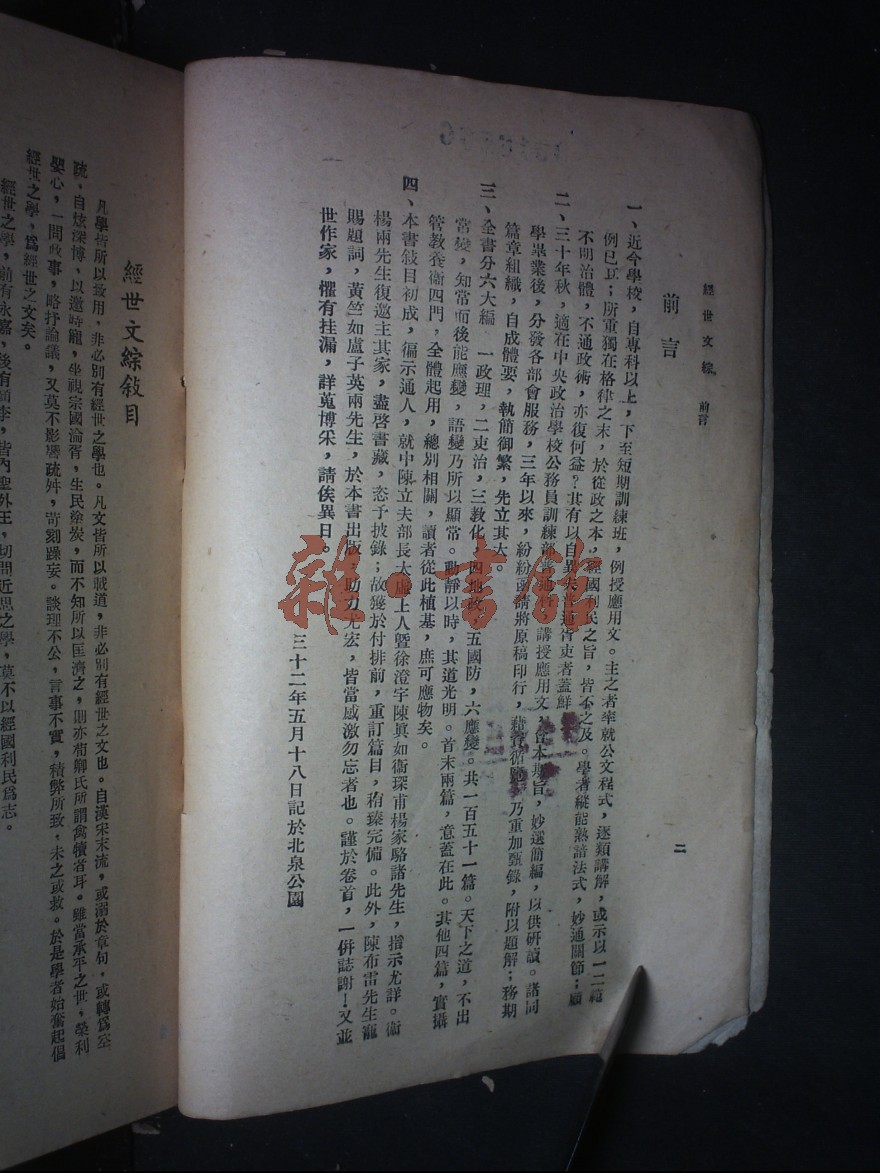 經世文綜 前言
二
前言
一、近今學校，自專科以上，下至短期訓練班，例授應用文。主之者率就公文程式，逐類講解，或示以一二範
例已耳；所重獨在格律之末，於從政之本，經國利民之旨，皆不之及。學者縱能熟諳法式，妙通關節；顧
不明治體，不通政術，亦復何益？其有以自異夫普通胥吏者蓋鮮
二、三十年秋，適在中央政治學校公務員訓練部普通，講授應用文，本期旨，妙選簡編，以供研讀。諸同
學畢業後，分發各部會服務，三年以來，紛紛函請將原稿印行，藉循，乃重加甄錄，附以題解；務期
篇章組織，自成體要，執簡御繁，先立其大。
三、全書分六大編 一政理，二吏治，三教化，四地政，五國防，六應變。共一百五十一篇。天下之道，不出
常變，知常而後能應變，語變乃所以顯常。動靜以時，其道光明。首末兩篇，意蓋在此。其他四篇，實攝
管教養衛四門，全體起用，總別相關，讀者從此植基，庶可應物矣。
四、本書敍目初成，徧示通人，就中陳立夫部長太虛上人曁徐澄宇陳眞如衞琛甫楊家駱諸先生，指示尤詳。衞
楊兩先生復邀主其家，盡啓書藏，恣予披錄；故獲於付排前，重訂篇目，稍臻完備。此外，陳布雷先生寵
賜題詞，黃竺如盧子英兩先生，於本書出版，助力尤宏，皆當感激勿忘者也。謹於卷首，一併誌謝！又並
世作家，懼有挂漏，詳蒐博采，請俟異日。
三十二年五月十八日記於北泉公園
雜·書館
經世文綜敍目
凡學皆所以致用，非必別有經世之學也。凡文皆所以載道，非必別有經世之文也。自漢宋末流，或溺於章句，或轉爲空
疏，自炫深博，以邀時寵，坐視宗國淪胥，生民塗炭，而不知所以匡濟之，則亦荀卿氏所謂禽犢者耳。雖當承平之世，榮利
嬰心，一問政事，略抒論議，又莫不影響疏舛，苛刻躁妄。談理不公，言事不實，積弊所致，未之或救。於是學者始奮起倡
經世之學，爲經世之文矣。
經世之學，前有永嘉，後有顏李，皆內聖外王，切問近思之學，莫不以經國利民爲志。